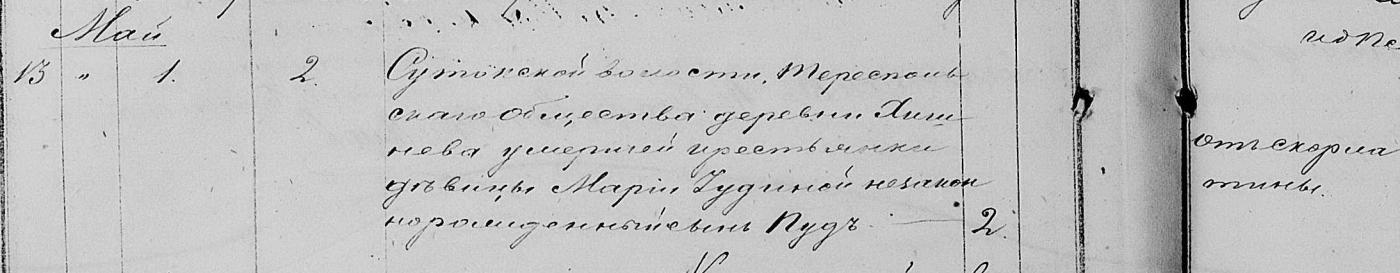 Май
13 " 1. 2. Сутокской волости, Тереспонь-
скаго общества деревни Хиш-
нева умершей крестьянки
дѣвицы Маріи Гудиной незакон
норожденный сынъ Пудъ — 2.
отъ скорла
тины.